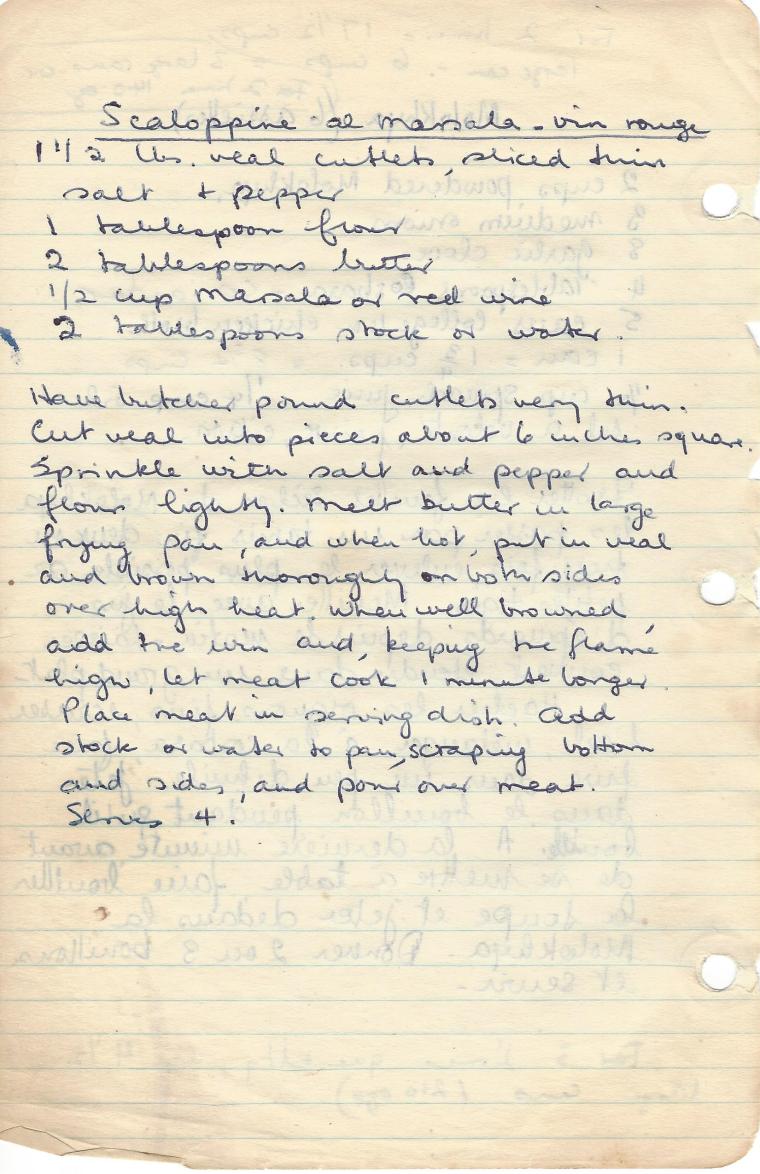 Scaloppine al Marsala - vin rouge
1 1/2 lbs. veal cutlets, sliced thin
salt + pepper
1 tablespoon flour
2 tablespoons butter
1/2 cup Marsala or red wine
2 tablespoons stock or water.
Have butcher pound cutlets very thin.
Cut veal into pieces about 6 inches square.
Sprinkle with salt and pepper and
flour lightly. Melt butter in large
frying pan, and when hot, put in veal
and brown thoroughly on both sides
over high heat. When well browned,
add the win and, keeping the flame
high, let meat cook 1 minute longer.
Place meat in serving dish. Add
stock or water to pan, scraping bottom
and sides, and pour over meat.
Serves 4.